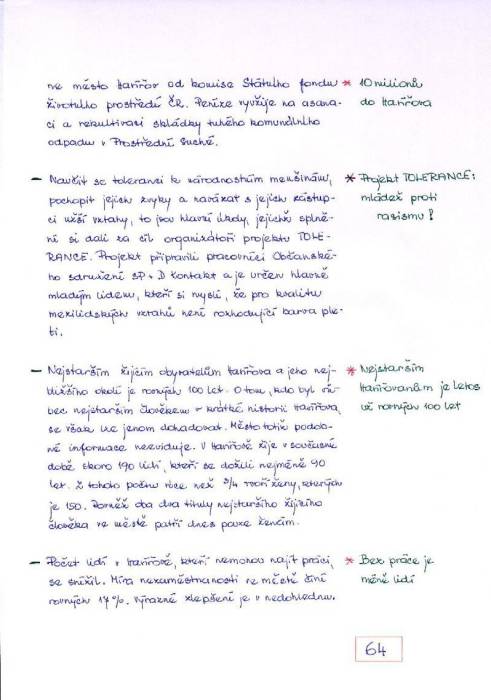 ne město Havířov od komise Státního fondu * 10 milionů
životního prostředí ČR. Peníze využije na asana- do Havířova
ci a rekultivaci skládky tuhého komunálního
odpadu v Prostřední Suché.
- Naučit se toleranci k národnostním menšinám, * Projekt TOLERANCE:
pochopit jejich zvyky a navázat s jejich zástup- mládež proti
ci užší vztahy, to jsou hlavní úkoly, jejichž splně- rasismu!
ní si dali za cíl organizátoři projektu TOLE-
RANCE. Projekt připravili pracovníci Občanské-
ho sdružení SP + D Kontakt a je určen hlavně
mladým lidem, kteří si myslí, že pro kvalitu
mezilidských vztahů není rozhodující barva ple-
ti.
- Nejstarším žijícím obyvatelům Havířova a jeho nej- * Nejstarším
bližšího okolí je rovných 100 let. O tom, kdo byl vů- Havířovanům je letos
bec nejstarším člověkem v krátké historii Havířova, už rovných 100 let
se však lze jenom dohadovat. Město totiž podob-
né informace neeviduje. V Havířově žije v současné
době skoro 190 lidí, kteří se dožili nejméně 90
let. Z tohoto počtu více než 3/4 tvoří ženy, kterých
je 150. Rovněž oba dva tituly nejstaršího žijícího
člověka ve městě patří dnes pouze ženám.
- Počet lidí v Havířově, kteří nemohou najít práci, * Bez práce je
se snížil. Míra nezaměstnanosti ve městě činí méně lidí
rovných 17%. Výrazné zlepšení je v nedohlednu.
64